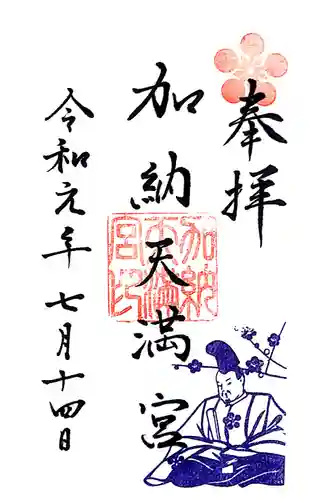 奉拝
加納天満宮
加納天満宮印
令和元年七月十四日